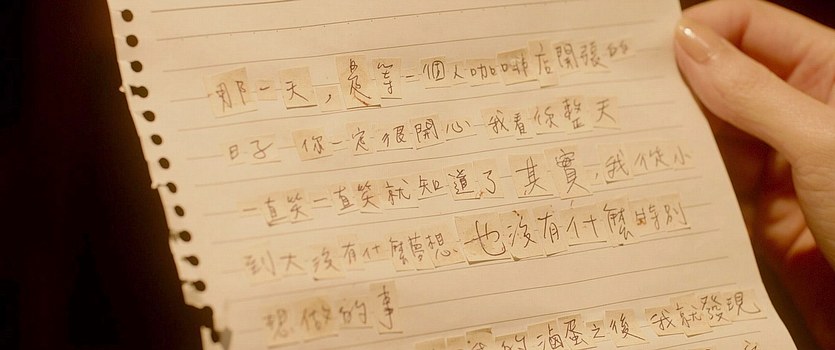 那一天，是等一個人咖啡店開張的
日子 你一定很開心 我看你整天
一直笑一直笑就知道了其實，我從小
到大沒有什麼夢想 也沒有什麼特別
想做的事
的滷蛋之後 我就發現